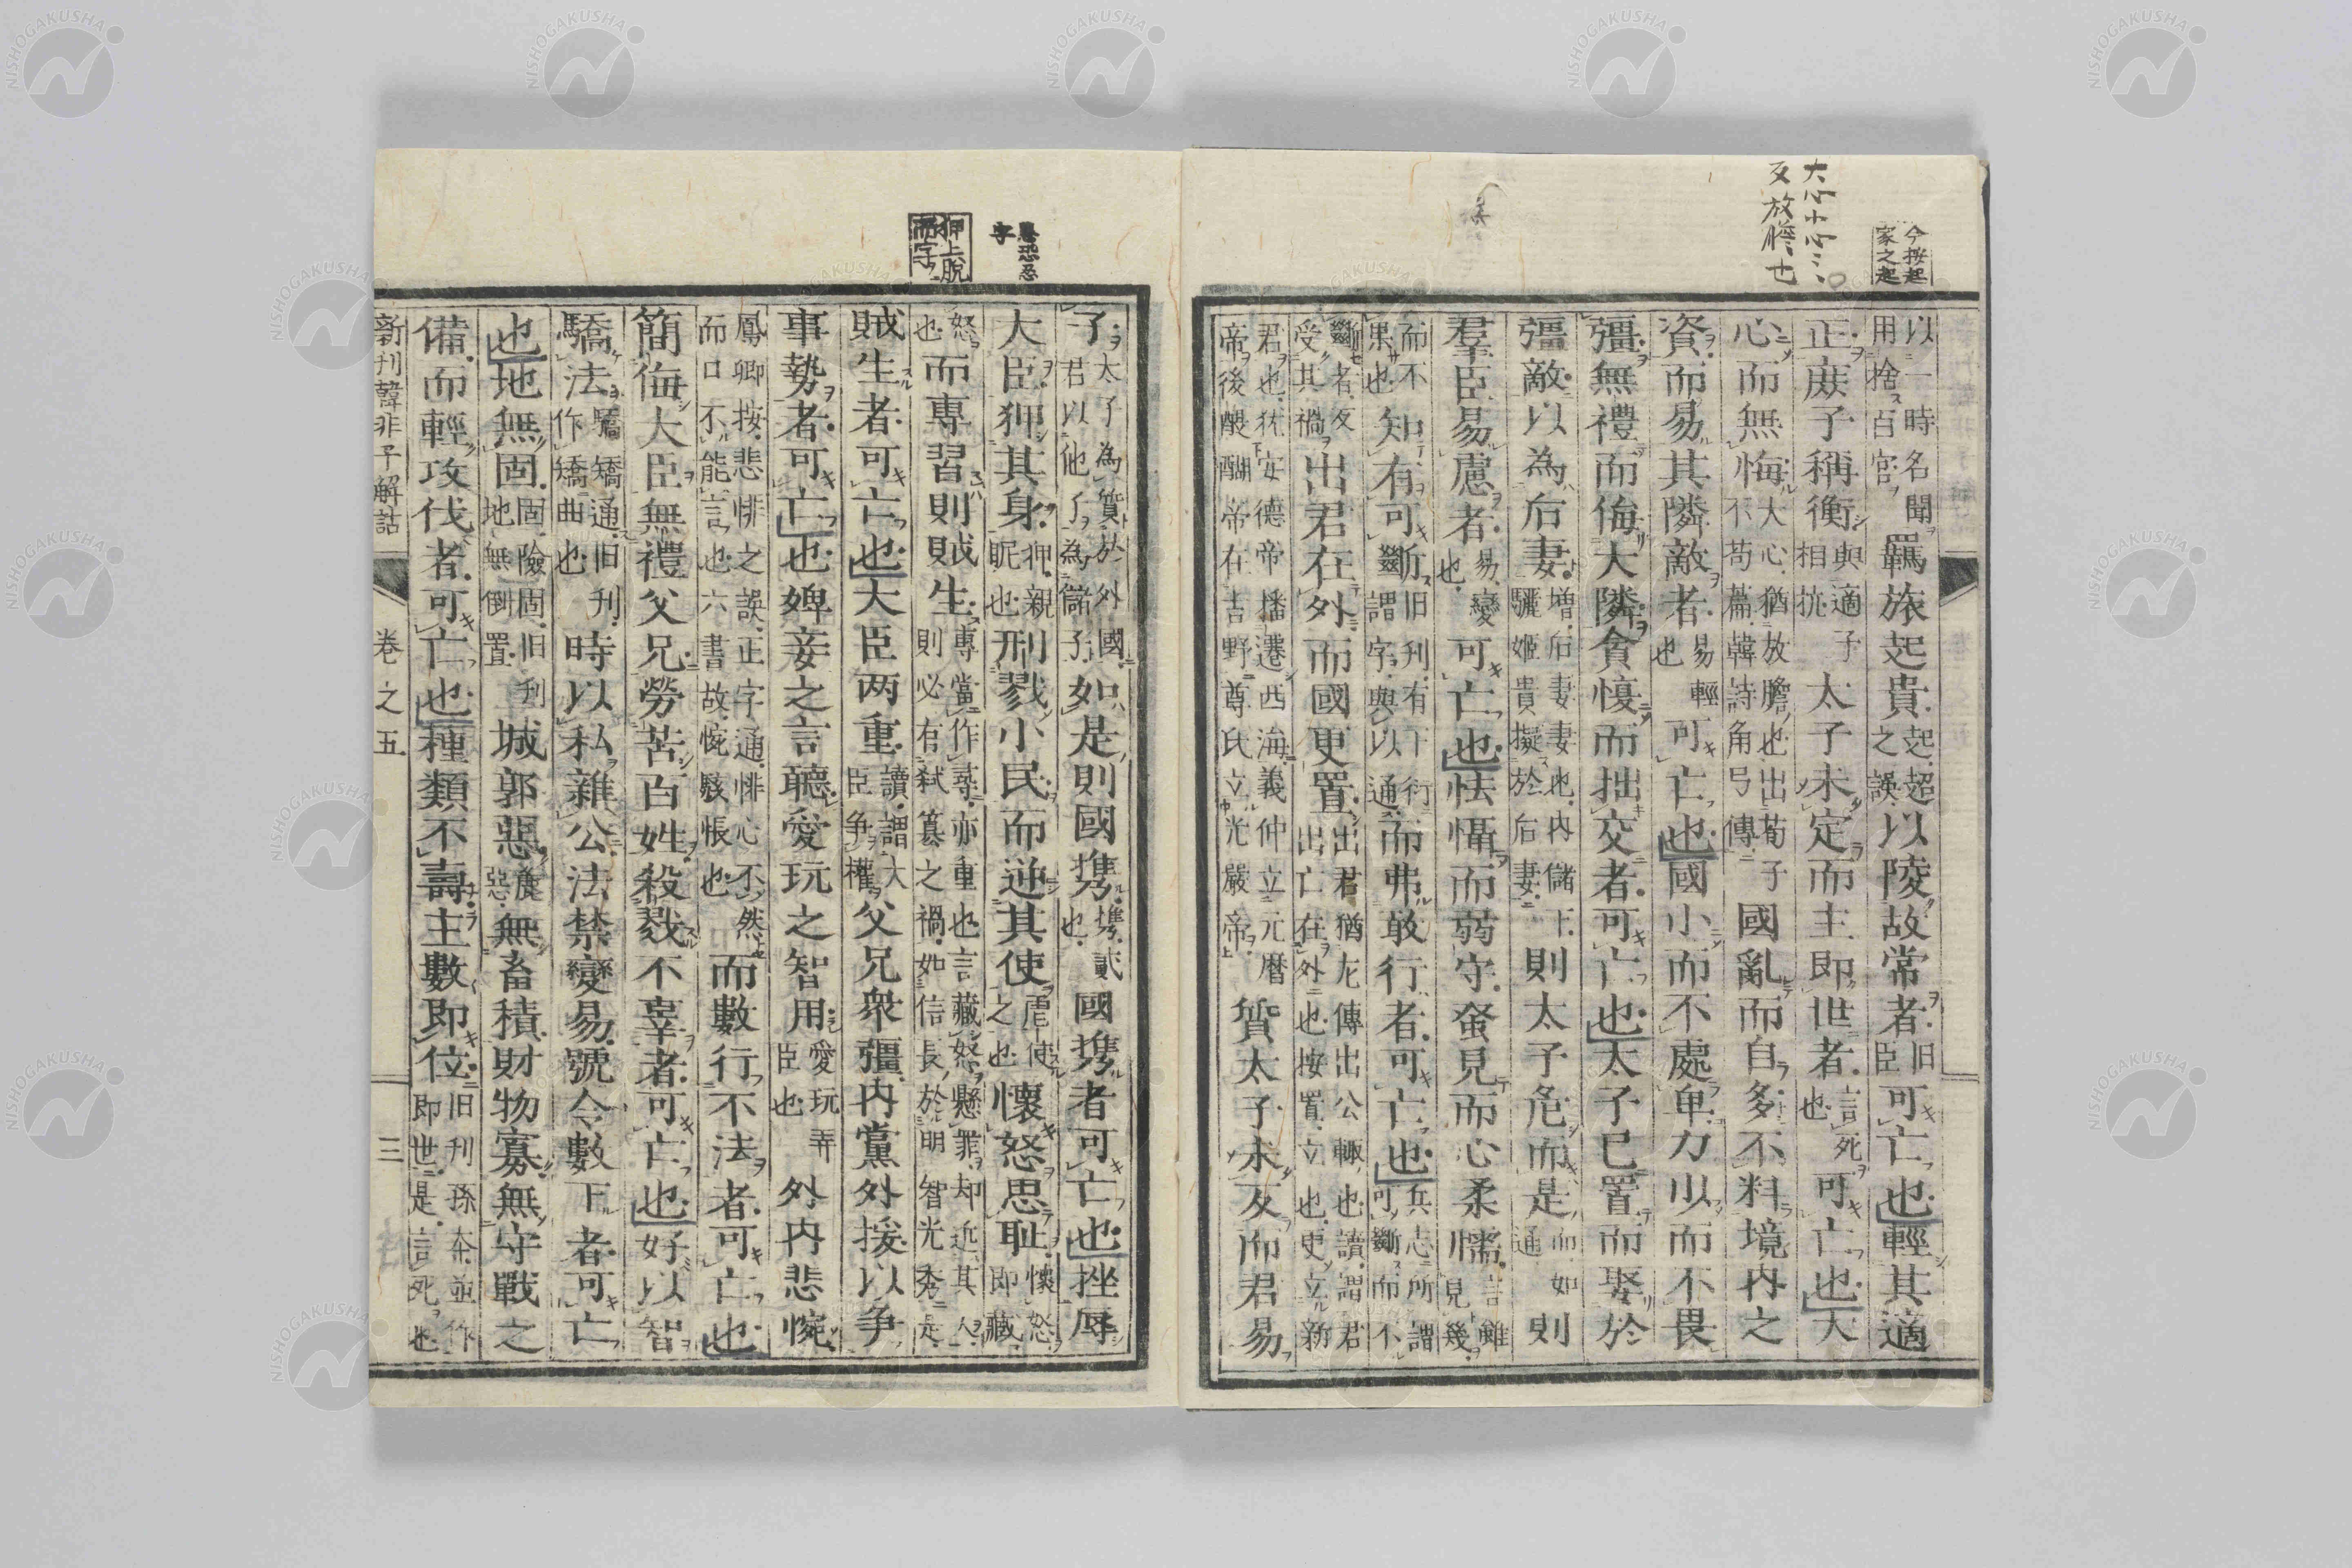 今按起
家之起
大心小心之
反放膽也
以一時名聞用捨百官羈旅起貴起超之誤以陵故常者旧臣可亡也輕其適
正庶子稱衡與適子相抗太子未定而主即世者言死也可亡也大
心而無悔大心猶放膽也出荀子不苟篇韓詩角弓傳國亂而自多不料境内之
資而易其隣敵者易輕也可亡也國小而不處卑力少而不畏
彊無禮而侮大隣貪愎而拙交者可亡也太子已置而娶於
彊敵以為后妻增后妻妻也内儲下驪姬貴擬於后妻則太子危而是而如通則
羣臣易慮者易變也可亡也怯懾而弱守蚤見而心柔懦言雖見幾
而不果也知有可斷旧刋有下衍謂字與以通而弗敢行者可亡也兵志所謂可斷而不
斷者反受其禍出君在外而國更置出君猶左傳出公輙也讀謂君出亡在外也按置立也更立新
君也犹安德帝播遷西海義仲立元暦帝後醍醐帝在吉野尊氏立光嚴帝質太子未反而君易
愚恐忍
字
狎上脱
而字
子太子為質於外國君以他子為儲子如是則國攜攜貳也國攜者可亡也挫辱
大臣狎其身狎親昵也刑戮小民而逆其使虐使之也懷怒思耻懷怒即藏
怒也而專習則賊生專黨作葬亦重也言藏怒懸罪却近其人則必有弑簒之禍如信長於明智光秀是
賊生者可亡也大臣两重讀謂大臣争權父兄衆彊内黨外援以争
事勢者可亡也婢妾之言聽愛玩之智用愛玩弄臣也外内悲惋
鳳卿按悲悱之誤正字通悱心不然而口不能言也六書故惋駭悵也而數行不法者可亡也
簡侮大臣無禮父兄勞苦百姓殺戮不辜者可亡也好以智
驕法驕矯通旧刋作矯曲也時以私雜公法禁變易號令數下者可亡
也地無固固險固旧刋地無倒置城郭惡無畜積財物寡無守戰之
備而輕攻伐者可亡也種類不壽主數即位旧刋孫本並作即世是言死也
新刊韓非子解詁　卷之五　三